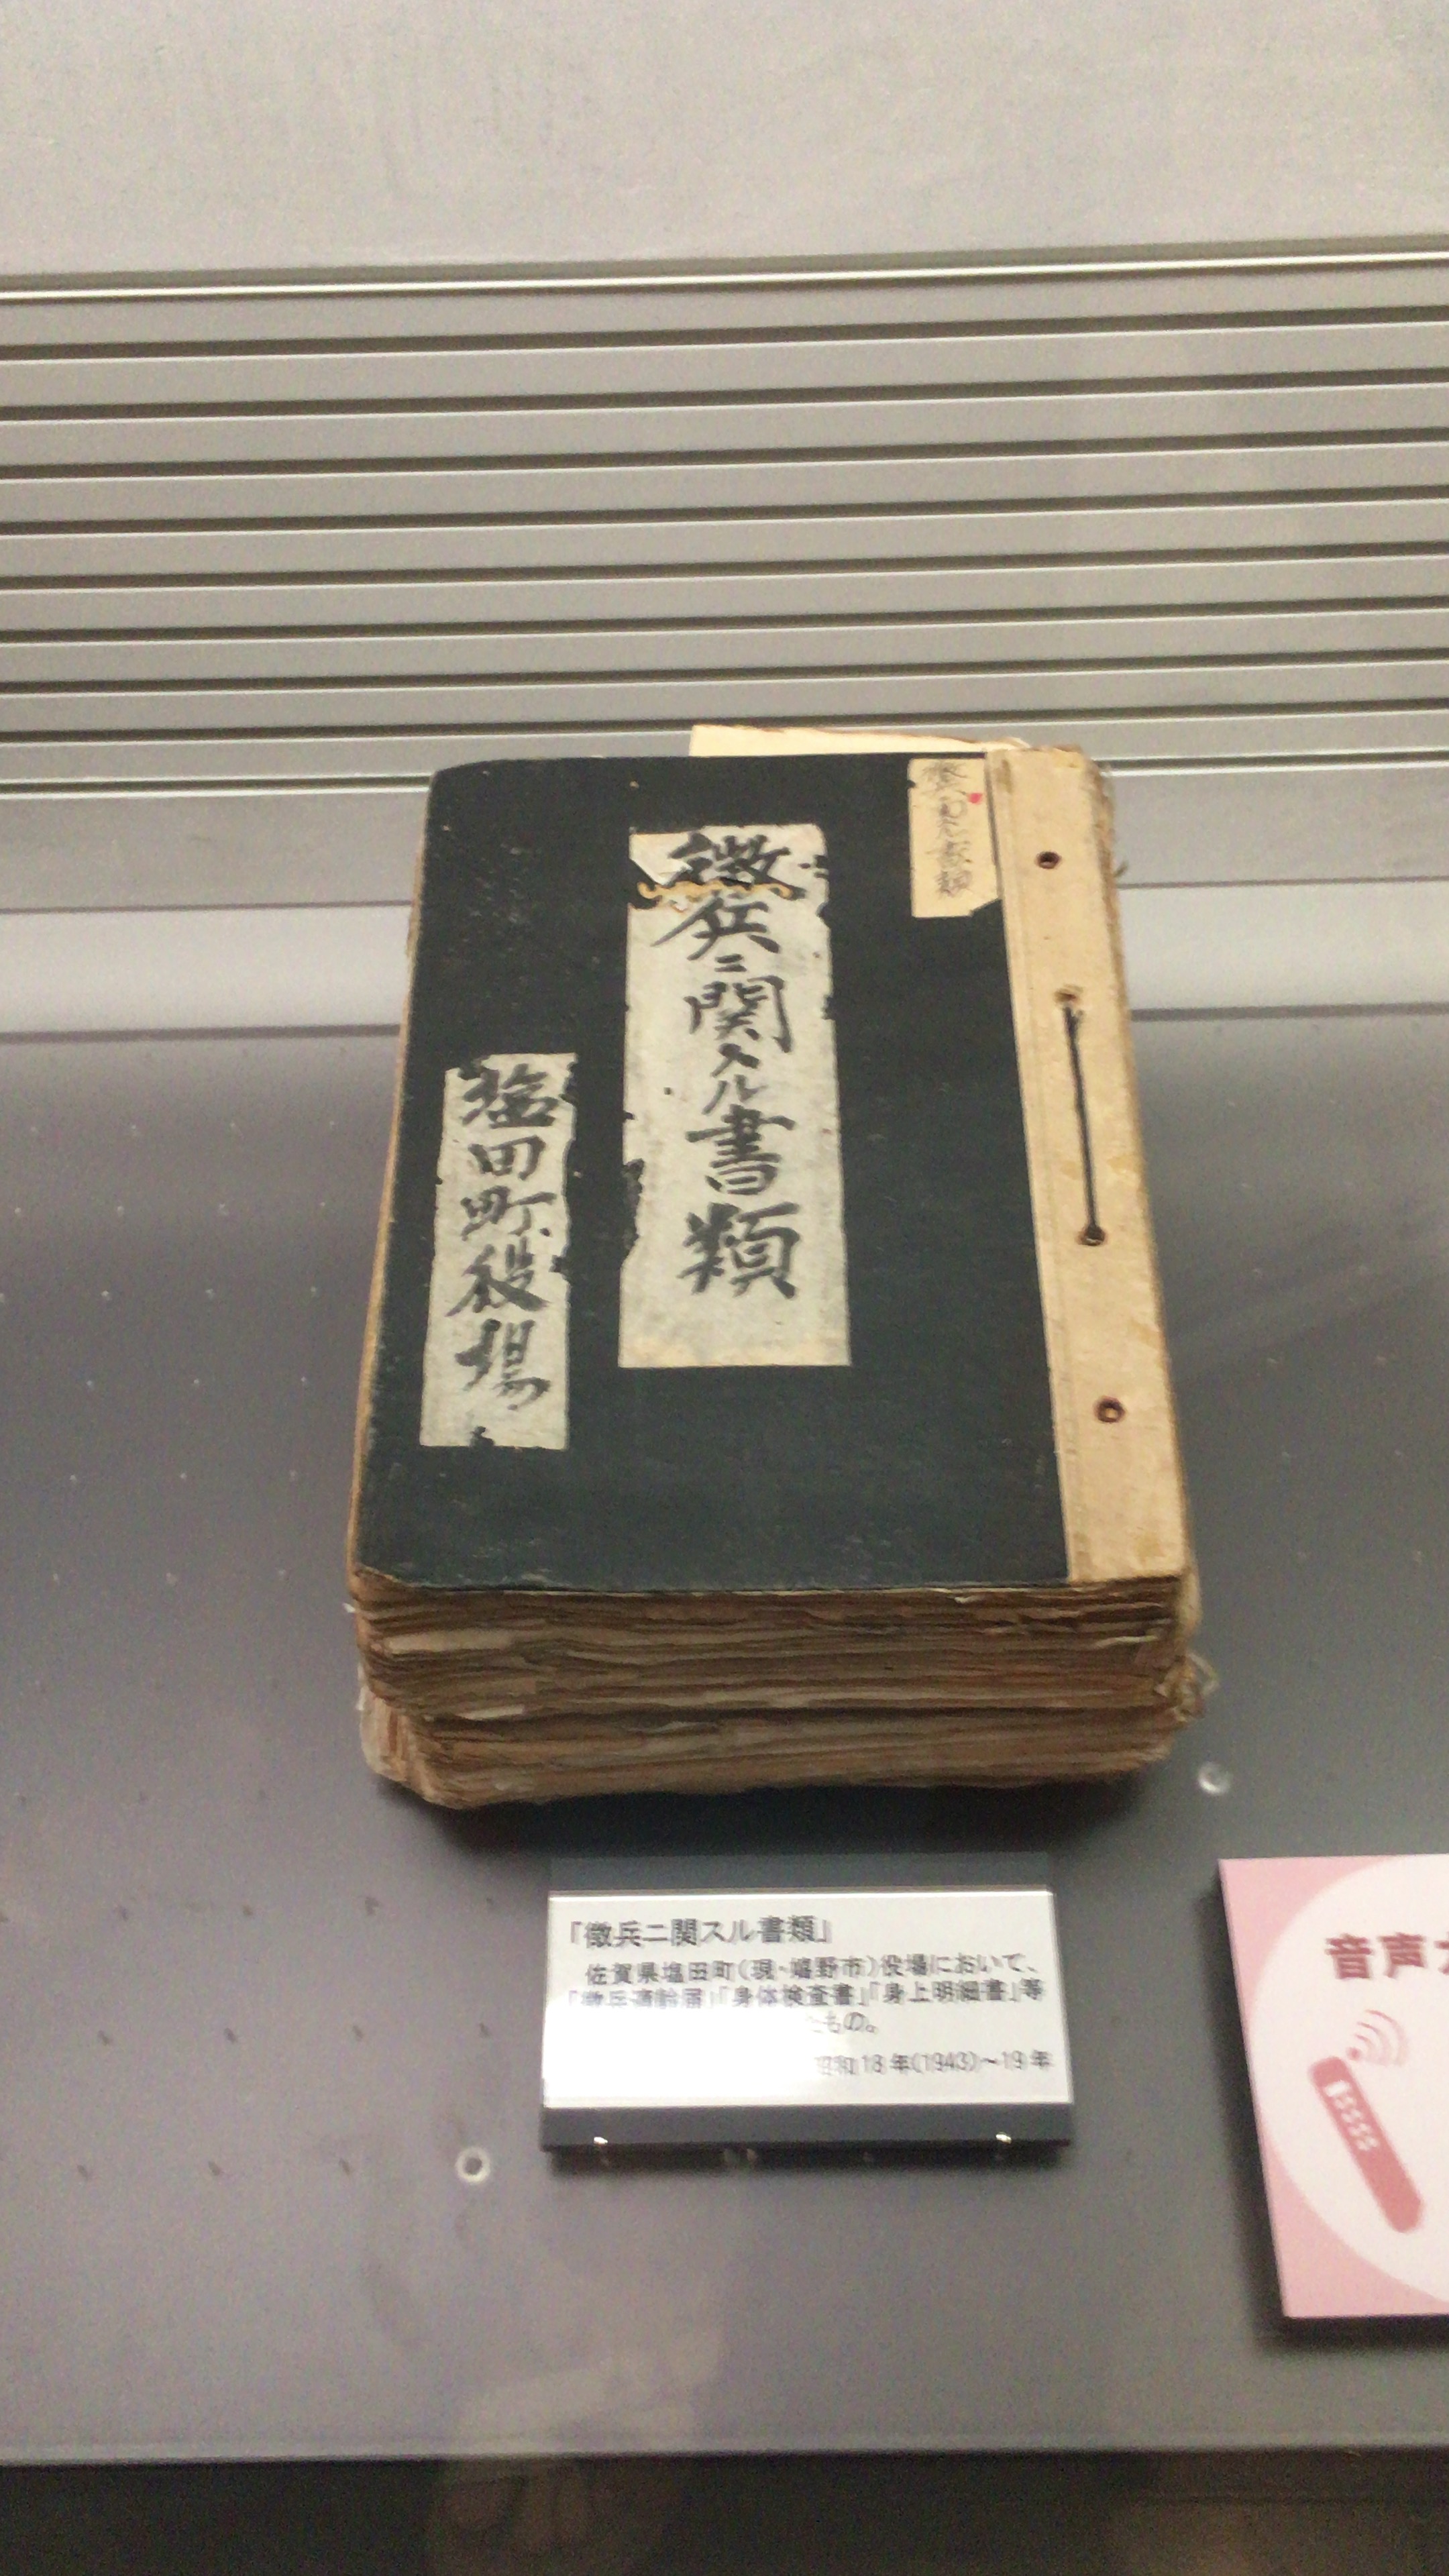 徴兵ニ関スル書類
塩田町役場
『徴兵ニ関スル書類』
佐賀県塩田町(現・嬉野市)役場において、
「徴兵適齢届」「身体検査書」「身上明細書」等
たもの。
昭和18年(1943)~19年
音声